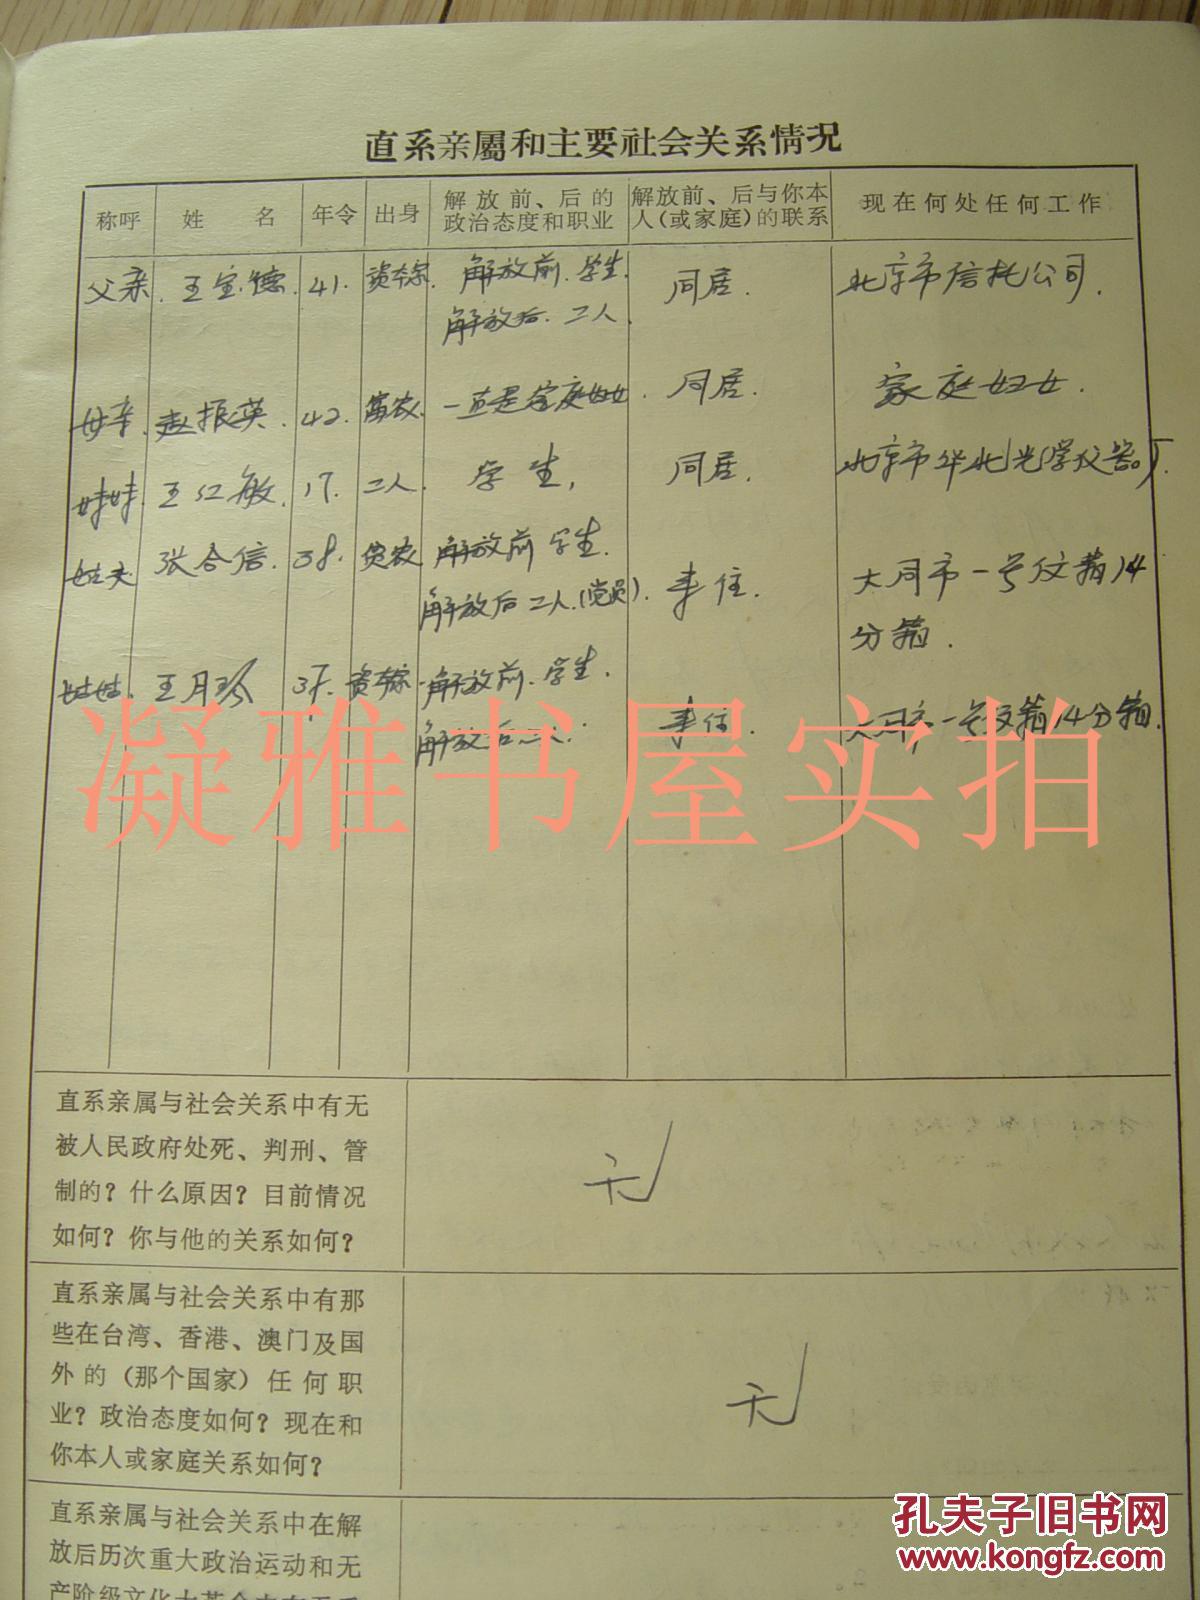 直系亲屬和主要社会关系情况
称呼 姓 名 年令 出身 解放前、后的政治态度和职业 解放前、后与你本人(或家庭)的联系 现在何处任何工作
父亲. 王宝德. 41. 资本家. 解放前.学生. 同居. 北京市信托公司.
解放后.工人.
母亲. 赵振英. 42. 富农. 一直是家庭妇女. 同居. 家庭妇女.
妹妹. 王红敏. 17. 工人. 学生, 同居. 北京市华北光学仪器厂.
姑夫 张合信. 38. 贫农 解放前学生. 大同市一号信箱14
解放后工人.(党员). 来往. 分箱.
姑姑. 王月琴 37. 资本家. 解放前.学生.
解放后工人. 来往. 大同市一号信箱14分箱.
凝雅书屋实拍
直系亲属与社会关系中有无
被人民政府处死、判刑、管
制的？什么原因？目前情况
如何？你与他的关系如何？
无
直系亲属与社会关系中有那
些在台湾、香港、澳门及国
外的（那个国家）任何职
业？政治态度如何？现在和
你本人或家庭关系如何？
无
直系亲属与社会关系中在解
放后历次重大政治运动和无
产阶级文化大革命中有无受
孔夫子旧书网
www.kongfz.com